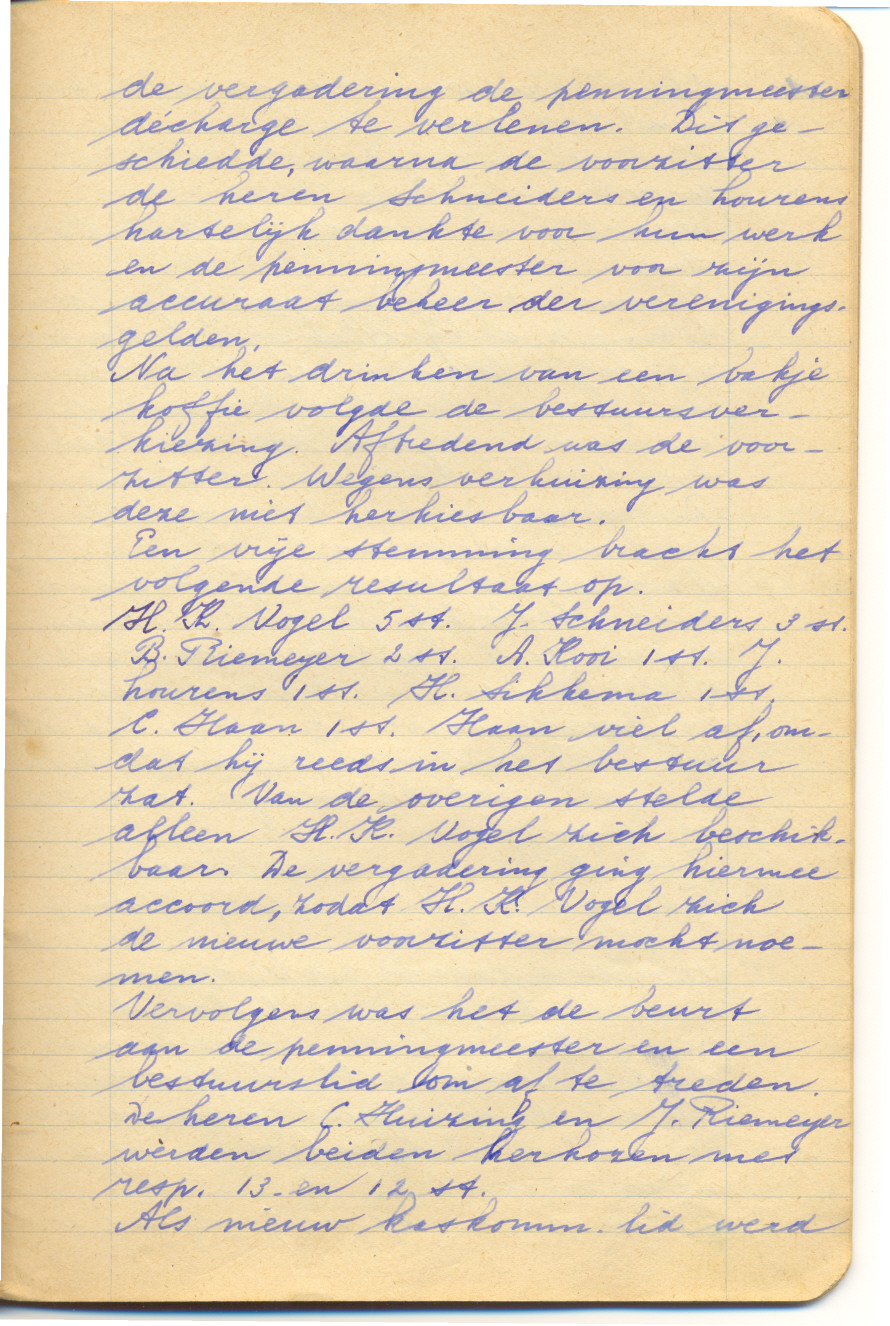 de vergadering de penningmeester
décharge te verlenen. Dit ge-
schiedde, waarna de voorzitter
de heren Schneiders en Lourens
hartelijk dankte voor hun werk
en de penningmeester voor zijn
accuraat beheer der verenigings-
gelden.
Na het drinken van een bakje
koffie volgde de bestuursver-
kiezing. Aftredend was de voor-
zitter. Wegens verhuizing was
deze niet herkiesbaar.
Een vrije stemming bracht het
volgende resultaat op.
H. K. Vogel 5 st. J. Schneiders 3 st.
B. Riemeyer 2 st. A. Kooi 1 st. J.
Lourens 1 st. H. Sikkema 1 st.
C. Haan 1 st. Haan viel af, om-
dat hij reeds in het bestuur
zat. Van de overigen stelde
alleen H. K. Vogel zich beschik-
baar. De vergadering ging hiermee
accoord, zodat H. K. Vogel zich
de nieuwe voorzitter mocht noe-
men.
Vervolgens was het de beurt
aan de penningmeester en een
bestuurslid om af te treden.
De heren C. Huizing en J. Riemeyer
werden beiden herkozen met
resp. 13 en 12 st.
Als nieuw kaskomm. lid werd